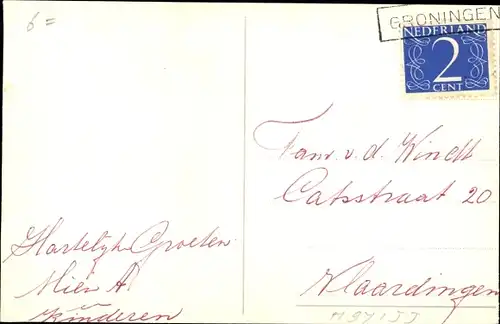 6=
GRONINGEN
NEDERLAND
2
CENT
Fam. v. d. Windt
Catsstraat 20
Vlaardingen
Hartelijke Groeten
Mien A
en
Kinderen